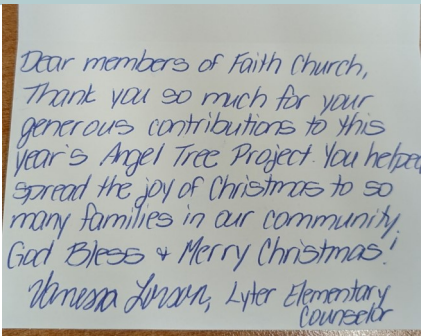 Dear members of Faith Church,
Thank you so much for your
generous contributions to this
year's Angel Tree Project. You helped
spread the joy of Christmas to so
many families in our community.
God Bless & Merry Christmas!
Vanessa Larson, Lyter Elementary
Counselor